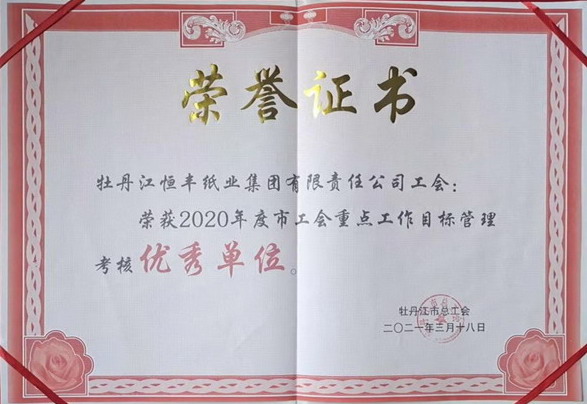 荣誉证书
牡丹江恒丰纸业集团有限责任公司工会：
荣获2020年度市工会重点工作目标管理
考核优秀单位。
牡丹江市总工会
二〇二一年三月十八日